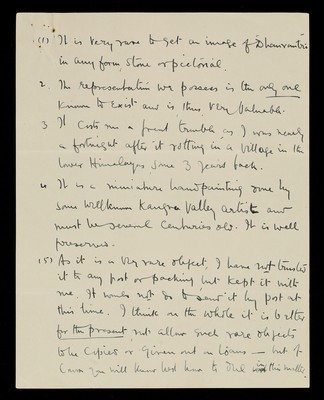 (1) It is very rare to get an image of Dhanvantri
in any form, stone or pictorial.
2. The representation we possess is the only one
known to exist and is thus very valuable.
3 It costs me a great trouble as I was nearly
a fortnight after it rotting in a village in the
lower Himalayas some 3 years back.
4 It is a miniature handpainting done by
some wellknown Kangra Valley artist and
must be several centuries old. It is well
preserved.
(5) As it is a very rare object, I have not trusted
it to any post or packing but kept it with
me. It would not do to send it by post at
this time. I think on the whole it is better
for the present not allow such rare objects
to be copied or given out on loans — but of
course you will know best how to deal in this matter.